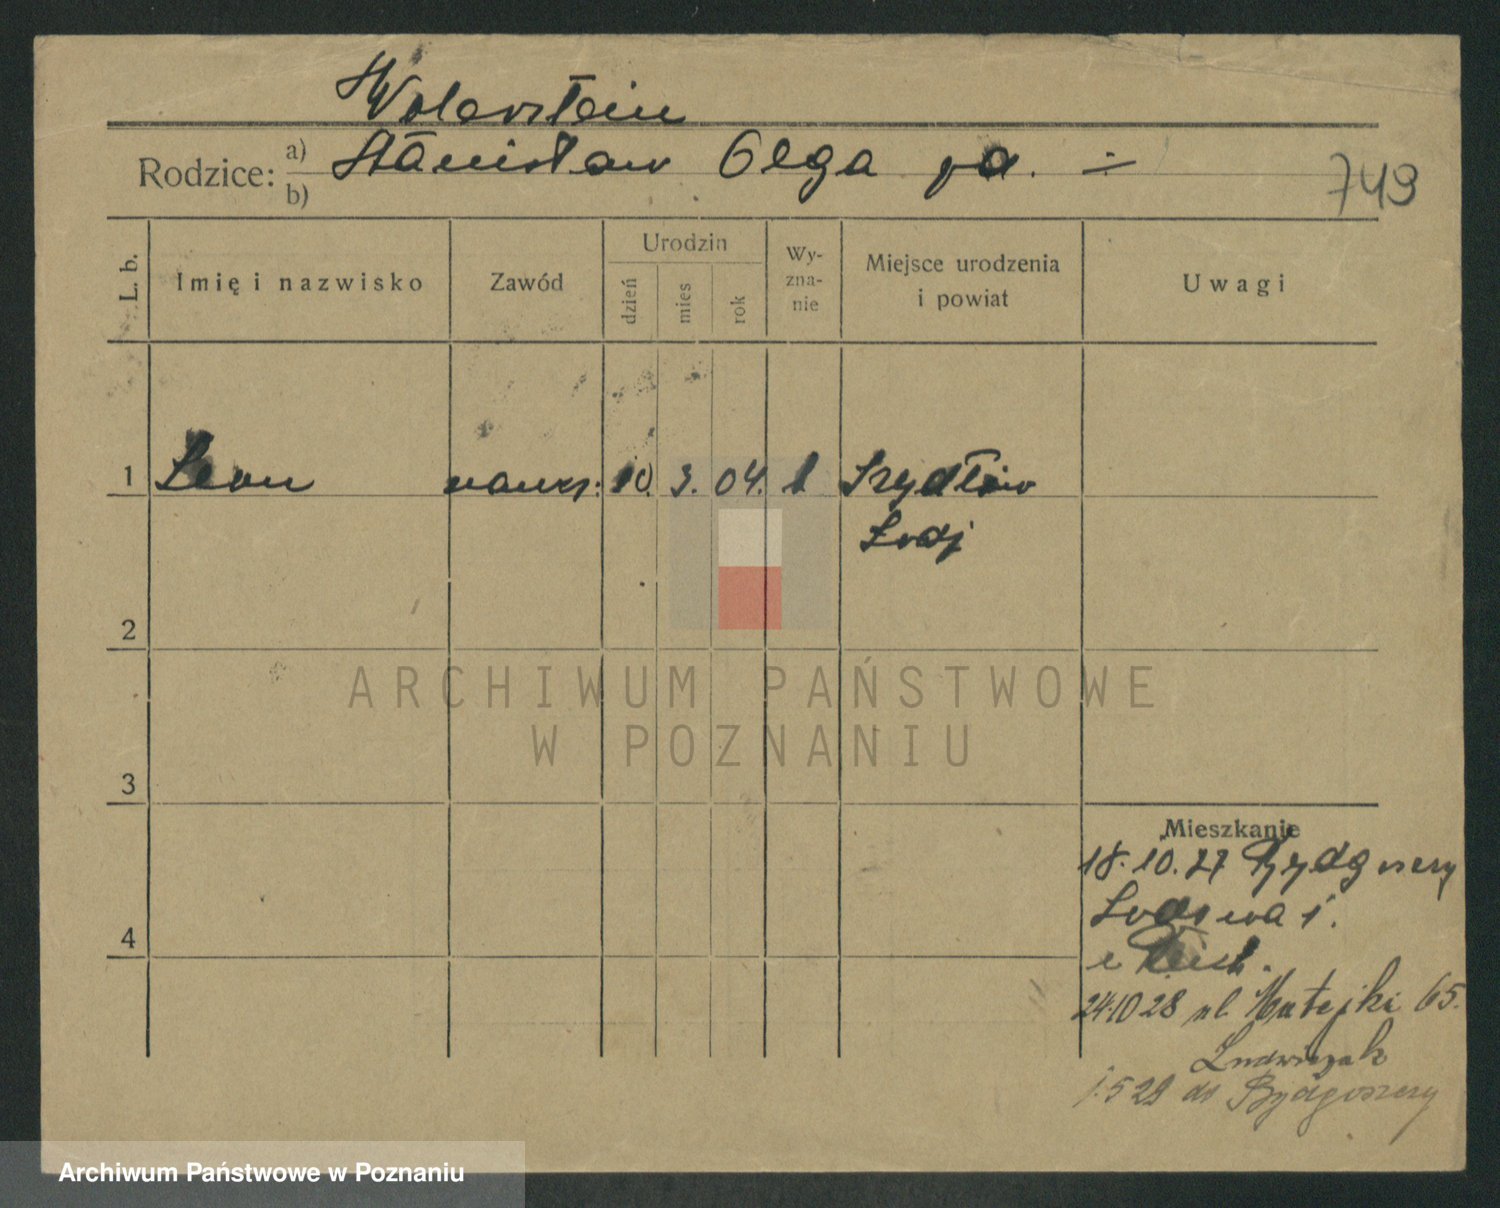 Wolerstein
Rodzice: a) b) Stanisław Olga
749
L. b.
Imię i nazwisko
Zawód
Urodzin
dzień
mies
rok
Wy-
zna-
nie
Miejsce urodzenia
i powiat
Uwagi
1 Leon naucz. 10. 3. 04. Szydłów
Łodź
2
ARCHIWUM PAŃSTWOWE
W POZNANIU
3
4
Mieszkanie
18.10.27 Bydgoszczy
24.10 28 ul. Matejki 65.
Ludwiczak
1.5 29 do Bydgoszczy
Archiwum Państwowe w Poznaniu